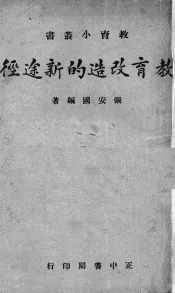 教育小叢書
教育改造的新途徑
張安國編著
正中書局印行